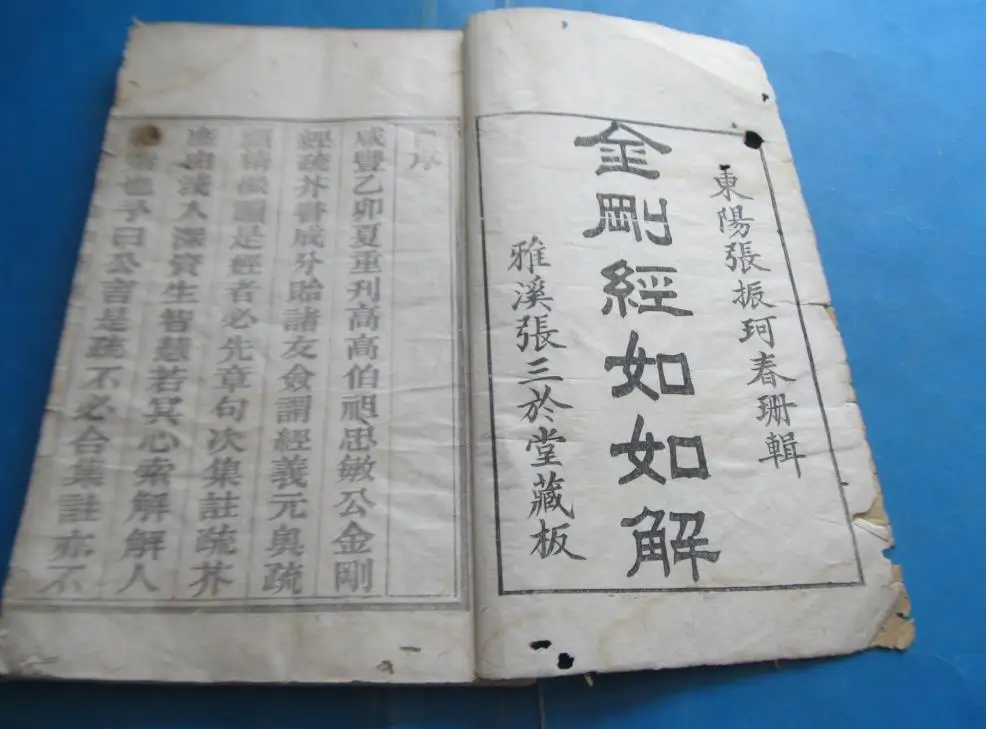 東陽張振珂春珊輯
金剛經如如解
雅溪張三於堂藏板
序
咸豐乙卯夏重刊高高伯祖忠敏公金剛
經疏芥書成分貽諸友僉謂經義元奥疏
精微讀是經者必先章句次集註疏芥
庶由淺入深資生智慧若冥心索解解人
也予曰公言是疏不必合集註亦不